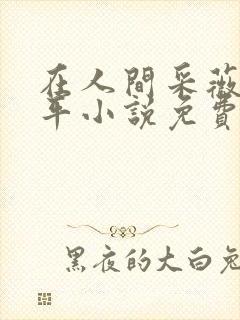 在人間采薇
年小説免費
黑夜的大白兔